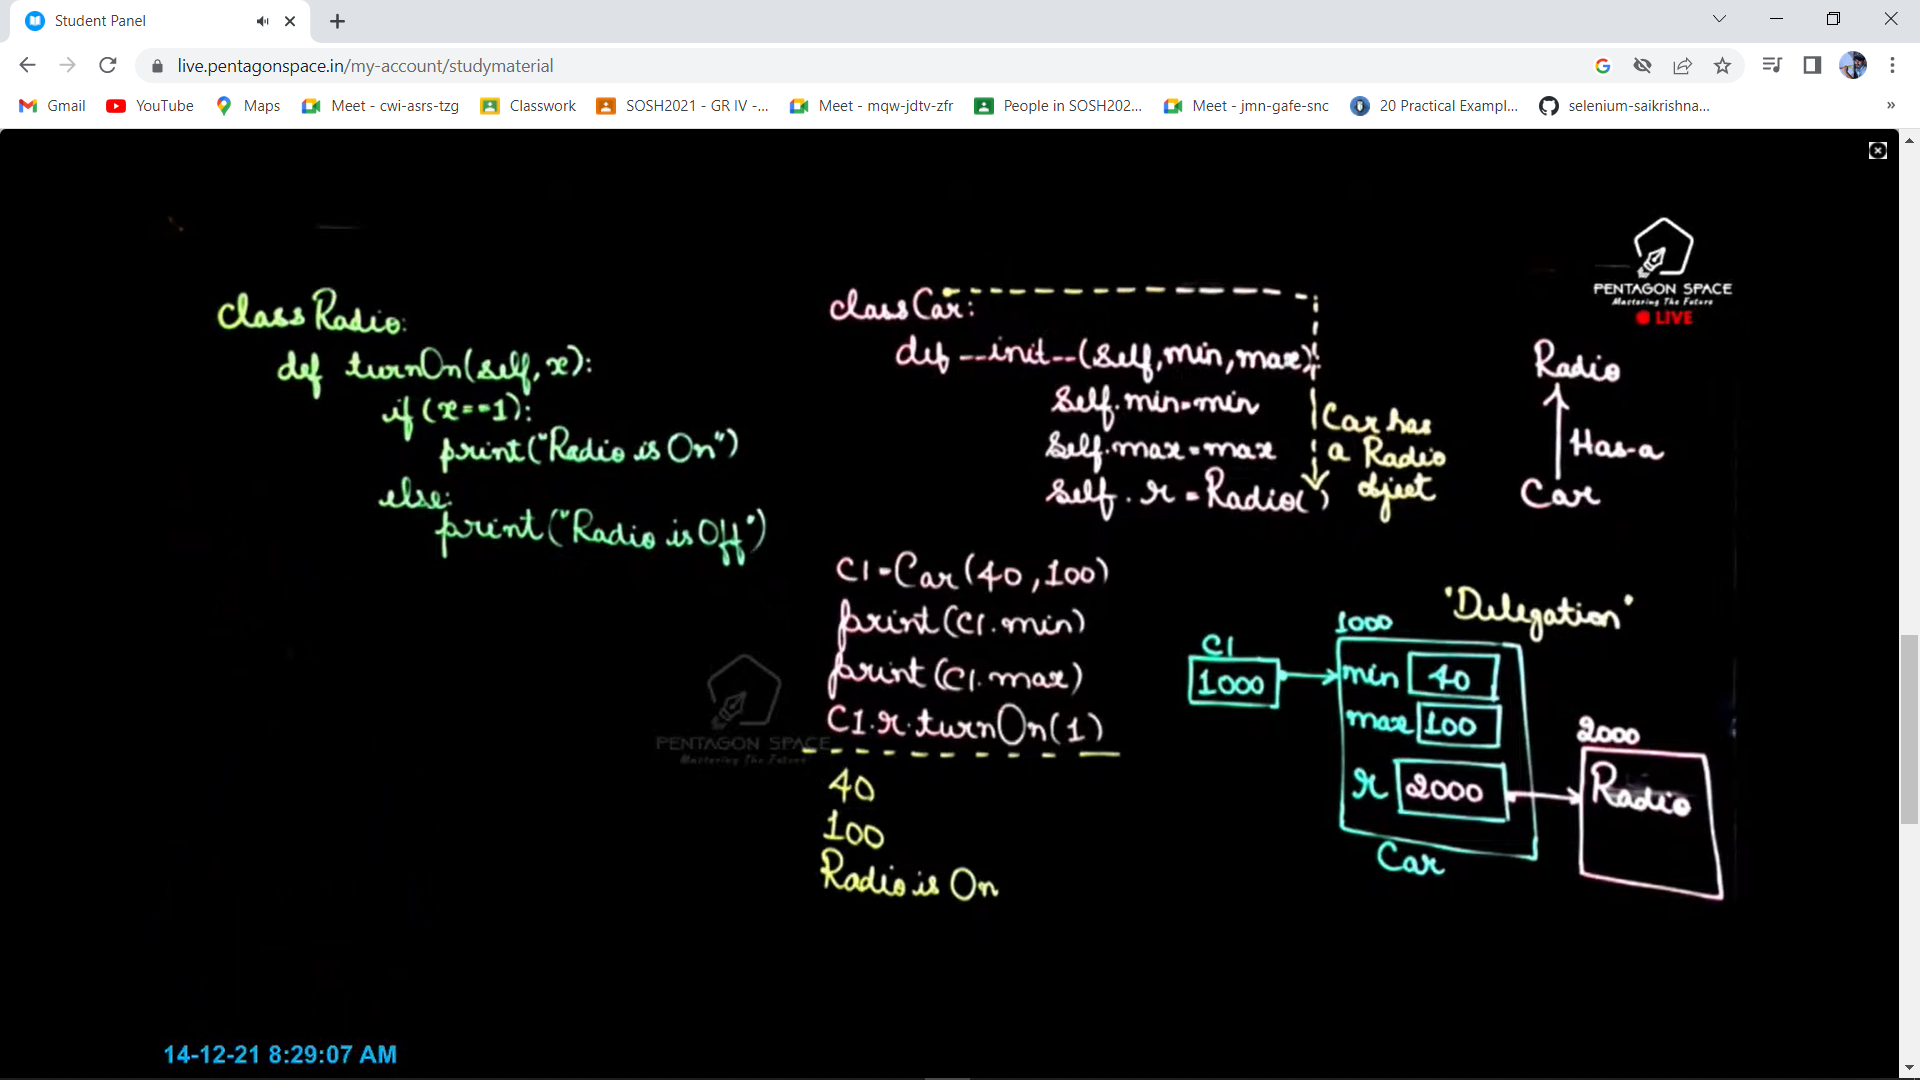 Student Panel
live.pentagonspace.in/my-account/studymaterial
Gmail YouTube Maps Meet - cwi-asrs-tzg Classwork SOSH2021 - GR IV -... Meet - mqw-jdtv-zfr People in SOSH202... Meet - jmn-gafe-snc 20 Practical Exampl... selenium-saikrishna... »
PENTAGON SPACE
Mastering The Future
LIVE
class Radio:
def turnOn(self, x):
if (x==1):
print("Radio is On")
else:
print("Radio is Off")
class Car:
def __init__(self, min, max):
self.min=min
self.max=max
self.r=Radio()
Car has
a Radio
object
Radio
Has-a
Car
C1=Car(40,100)
print(C1.min)
print(C1.max)
C1.r.turnOn(1)
40
100
Radio is On
PENTAGON SPACE
Mastering The Future
"Delegation"
C1
1000
1000
min 40
max 100
r 2000
Car
2000
Radio
14-12-21 8:29:07 AM